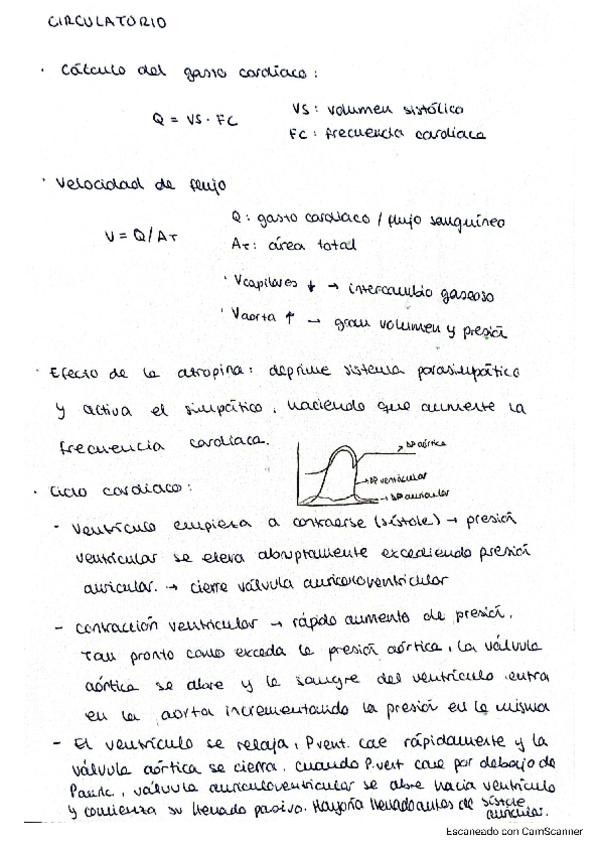 CIRCULATORIO
· Cálculo del gasto cardíaco:
Q = VS · FC
VS: volumen sistólico
FC: frecuencia cardíaca
· Velocidad de flujo
V = Q/AT
Q: gasto cardíaco / flujo sanguíneo
AT: área total
· Vcapilares ↓ → intercambio gaseoso
· Vaorta ↑ → gran volumen y presión
· Efecto de la atropina: deprime sistema parasimpático
y activa el simpático, haciendo que aumente la
frecuencia cardíaca.
→ ΔP aórtica
→ ΔP ventricular
→ ΔP auricular
· Ciclo cardíaco:
- Ventrículo empieza a contraerse (sístole) → presión
ventricular se eleva abruptamente excediendo presión
auricular. → cierre válvula auriculoventricular
- Contracción ventricular → rápido aumento de presión.
Tan pronto como exceda la presión aórtica, la válvula
aórtica se abre y la sangre del ventrículo entra
en la aorta incrementando la presión en la misma
- El ventrículo se relaja, Pvent. cae rápidamente y la
válvula aórtica se cierra. Cuando P.vent cae por debajo de
Pauric, válvula auriculoventricular se abre hacia ventrículo
y comienza su llenado pasivo. Mayoría llenado antes de sístole
auricular.
Escaneado con CamScanner